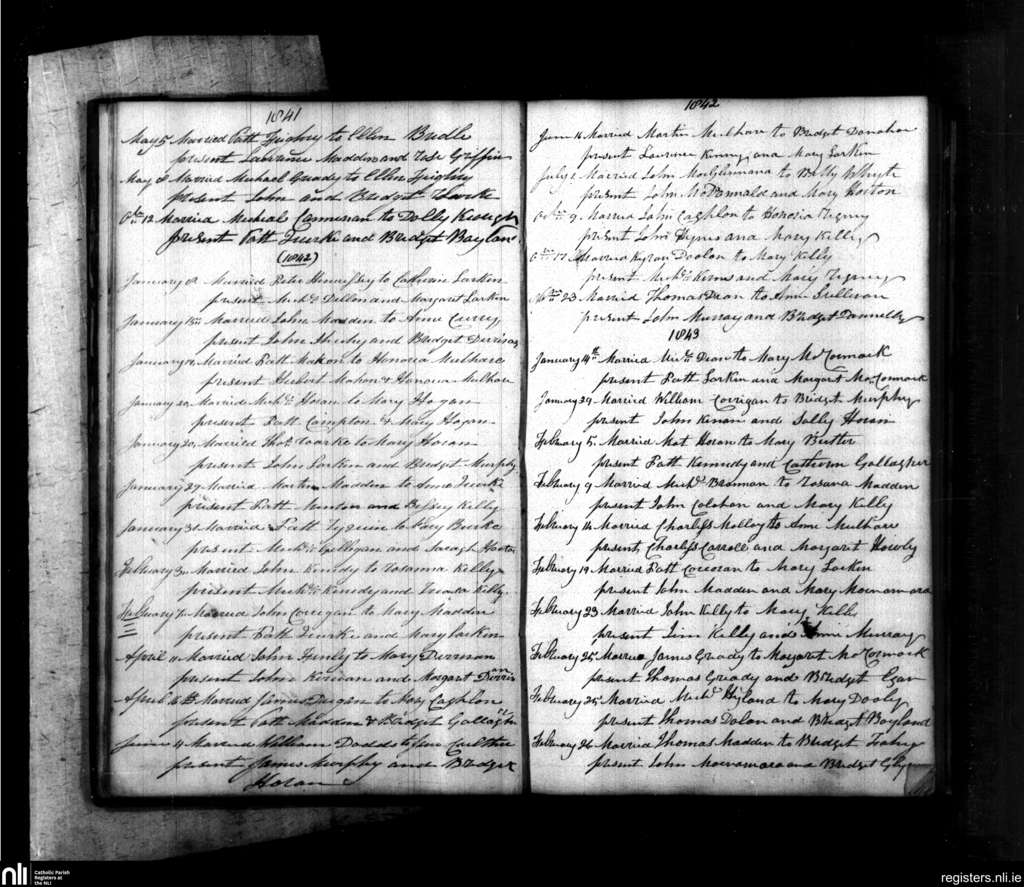 1841
May 5 Married Patt Feighry to Ellen Bridle
present Laurence Madden and Rose Griffin
May 8 Married Michael Gready to Ellen Feighry
present John and Bridget Clarke
Obr 12 Married Micheal Cammeran to Dolly Keough
present Patt Quirke and Bridget Boylan
(1842)
January 8 Married Peter Hennessy to Catherine Larkin
present Michl Dillon and Margaret Larkin
January 15 Married John Madden to Anne Curry
present John Sheehy and Bridget
January Married Patt Mahon to Honoria Mulhare
present Hubert Mahon & Honoria Mulhare
January 20 Married Michl Horan to Mary Hogan
present Patt Compton & Mary Hogan
January 20 Married Thos Coarke to Mary Horan
present John Larkin and Bridget Murphy
January 29 Married Martin Madden to Anne Quirke
present Patt and Bessey Kelly
January 31 Married Patt to Mary Burke
present Michl Gilligan and Saragh
February 3 Married John Kenedy to Rosanna Kelly
present Michl Kenedy and Kelly
February 7 Married John Corrigan to Mary Madden
present Patt Quirke and Mary Larkin
April 11 Married John Finley to Mary
present John Kirwan and Margaret
April 16th Married James Duigan to Mary Caghlon
present Patt Madden & Bridget Gallaghr
June 4 Married William Dodds to Jane
present James Murphy and Bridget
Horan
1842
June 16 Married Martin Mulhare to Bridget Donahoe
present Laurence Kinny and Mary Larkin
July 1 Married John to Betty Whyte
present John McDonnald and Mary Horton
Obr 9 Married John Caghlon to Honoria Tegney
present John Hynes and Mary Kelly
Obr 17 Married Kyran Doolon to Mary Kelly
present Michl Kerns and Mary Tegney
Nobr 23 Married Thomas Dean to Anne Sullivan
present John Murray and Bridget Donnelly
1843
January 14th Married Michl Dean to Mary McCormack
present Patt Larkin and Margaret McCormack
January 29 Married William Corrigan to Bridget Murphy
present John Kinan and Sally Horan
February 5 Married Mat Horan to Mary Butler
present Patt Kennedy and Catherin Gallagher
February 9 Married Michl Brannan to Rosana Madden
present John Colohan and Mary Kelly
February 14 Married Charless Molloy to Anne Mulhare
present, Charless Carroll and Margaret Howley
February 19 Married Patt Corcoran to Mary Larkin
present John Madden and Mary Macnamara
February 23 Married John Kelly to Mary Kelly
present Jim Kelly and Anne Murray
February 25 Married James Gready to Margaret McCormack
present Thomas Gready and Bridget Egan
February 25 Married Michl Hyland to Mary Dooly
present Thomas Dolan and Bridget Boyland
February 26 Married Thomas Madden to Bridget Fahy
present John Macnamara and Bridget
nli
Catholic Parish
Registers at
the NLI
registers.nli.ie